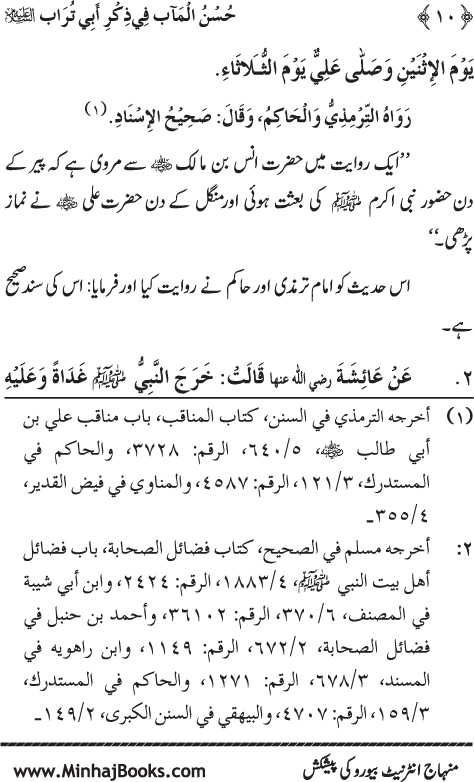 ﴿١٠﴾ حُسْنُ الْمَآب فِي ذِکْرِ أَبِي تُرَاب
يَوْمَ الإِثْنَيْنِ وَصَلَّی عَلِيٌّ يَوْمَ الثُّـلَاثَاءِ.
رَوَاهُ التِّرْمِذِيُّ وَالْحَاکِمُ، وَقَالَ: صَحِيْحُ الإِسْنَادِ. (١)
’’ایک روایت میں حضرت انس بن مالک ﷜ سے مروی ہے کہ پیر کے
دن حضور نبی اکرم ﷺ کی بعثت ہوئی اور منگل کے دن حضرت علی ﷜ نے نماز
پڑھی۔‘‘
اس حدیث کو امام ترمذی اور حاکم نے روایت کیا اور فرمایا: اس کی سند صحیح
ہے۔
٢. عَنْ عَائِشَةَ رضي الله عنها قَالَتْ: خَرَجَ النَّبِيُّ ﷺ غَدَاةً وَعَلَيْهِ
(١) أخرجه الترمذي في السنن، کتاب المناقب، باب مناقب علي بن
أبي طالب ﷜، ٥/٦٤٠، الرقم: ٣٧٢٨، والحاکم في
المستدرك، ٣/١٢١، الرقم: ٤٥٨٧، والمناوي في فيض القدير،
٤/٣٥٥۔
٢: أخرجه مسلم في الصحيح، کتاب فضائل الصحابة، باب فضائل
أهل بيت النبي ﷺ، ٤/١٨٨٣، الرقم: ٢٤٢٤، وابن أبي شيبة
في المصنف، ٦/٣٧٠، الرقم: ٣٦١٠٢، وأحمد بن حنبل في
فضائل الصحابة، ٢/٦٧٢، الرقم: ١١٤٩، وابن راهويه في
المسند، ٣/٦٧٨، الرقم: ١٢٧١، والحاکم في المستدرك،
٣/١٥٩، الرقم: ٤٧٠٧، والبيهقي في السنن الکبری، ٢/١٤٩۔
منہاج انٹرنیٹ بیورو کی پیشکش www.MinhajBooks.com